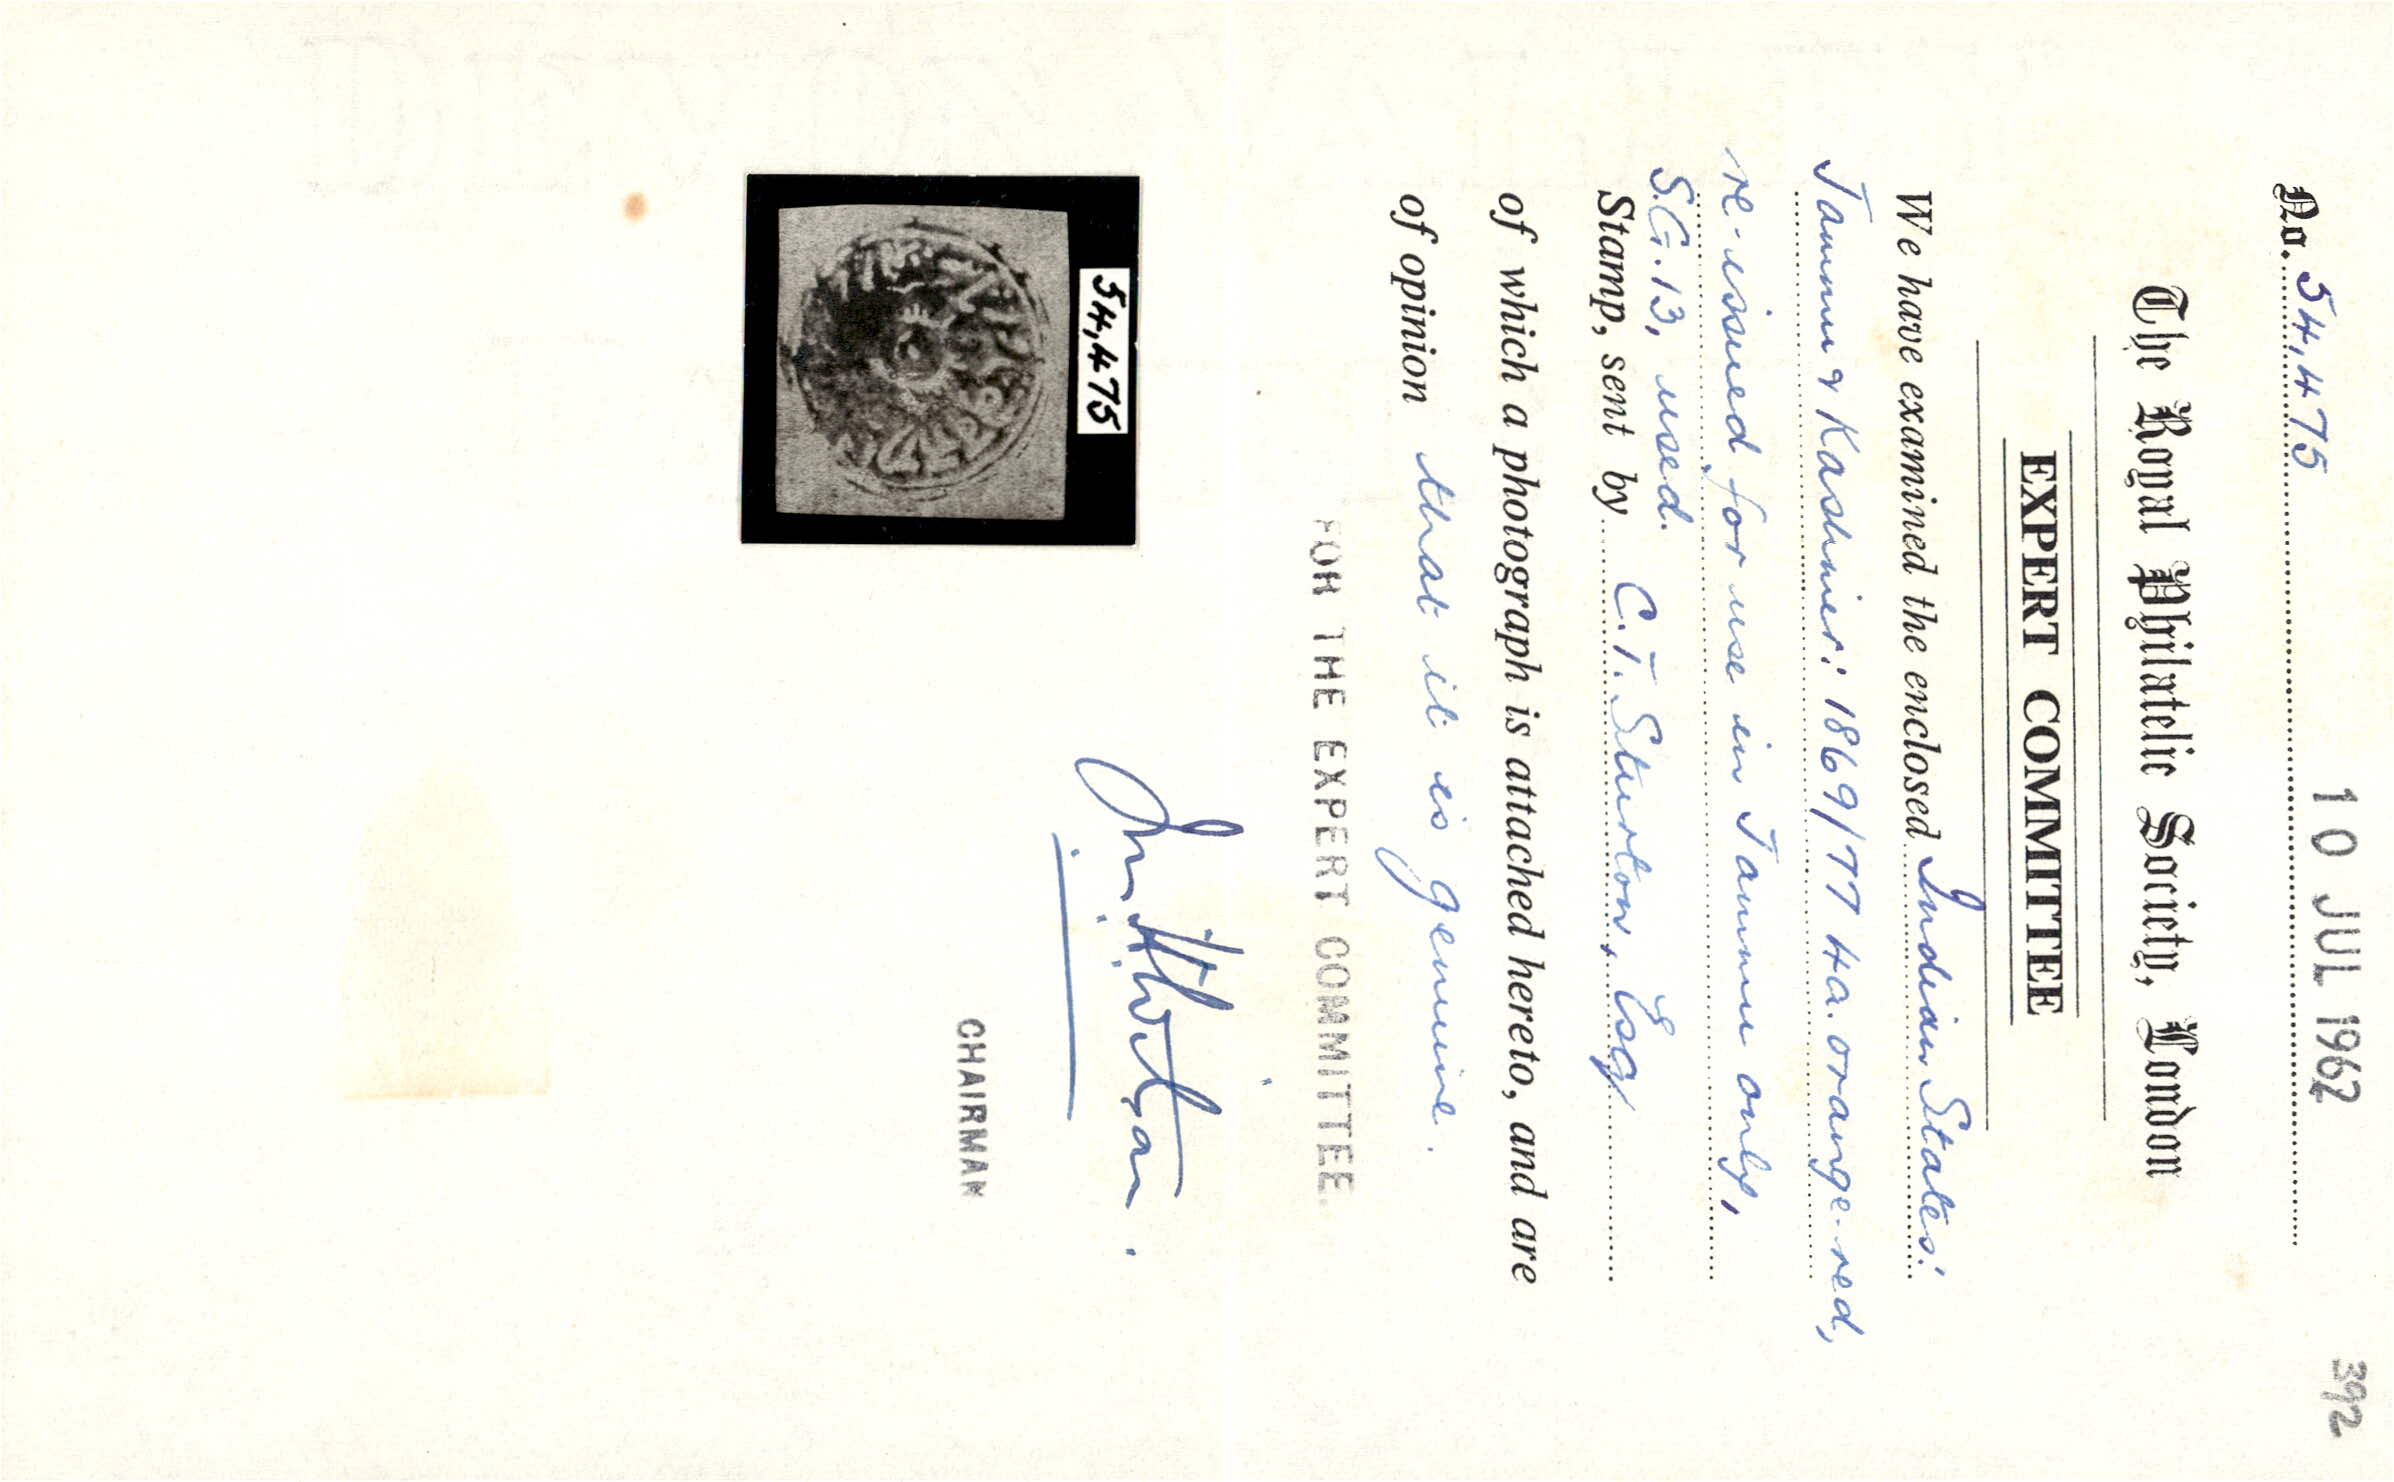 No. 54,475 10 JUL 1962
392
The Royal Philatelic Society, London
EXPERT COMMITTEE
We have examined the enclosed Indian States:
Jammu & Kashmir: 1869/77 4a. orange-red,
re-issued for use in Jammu only,
S.G. 13, used.
Stamp, sent by C.T. Sturton, Esq
of which a photograph is attached hereto, and are
of opinion that it is genuine.
FOR THE EXPERT COMMITTEE.
CHAIRMAN
54,475